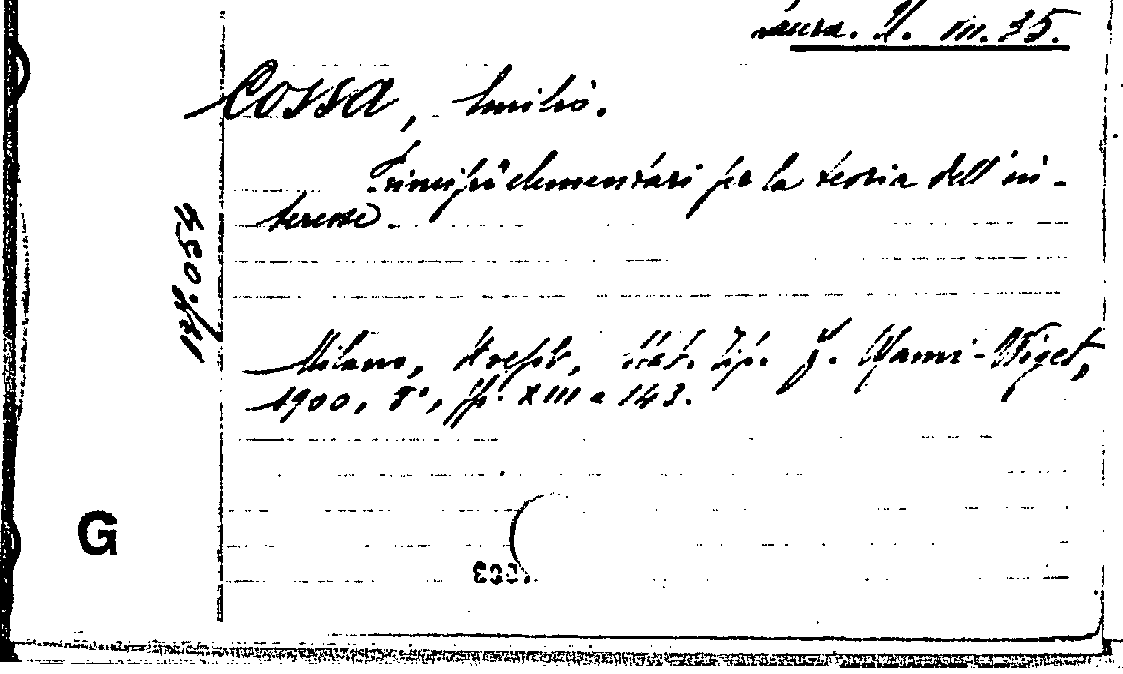 Laura. II. m. 35.
COSSA, Emilio.
Principî elementari per la teoria dell'in-
teresse.
Milano, Hoepli, stab. tip. J. Wiget,
1900, 8°, pp. XIII e 143.
G